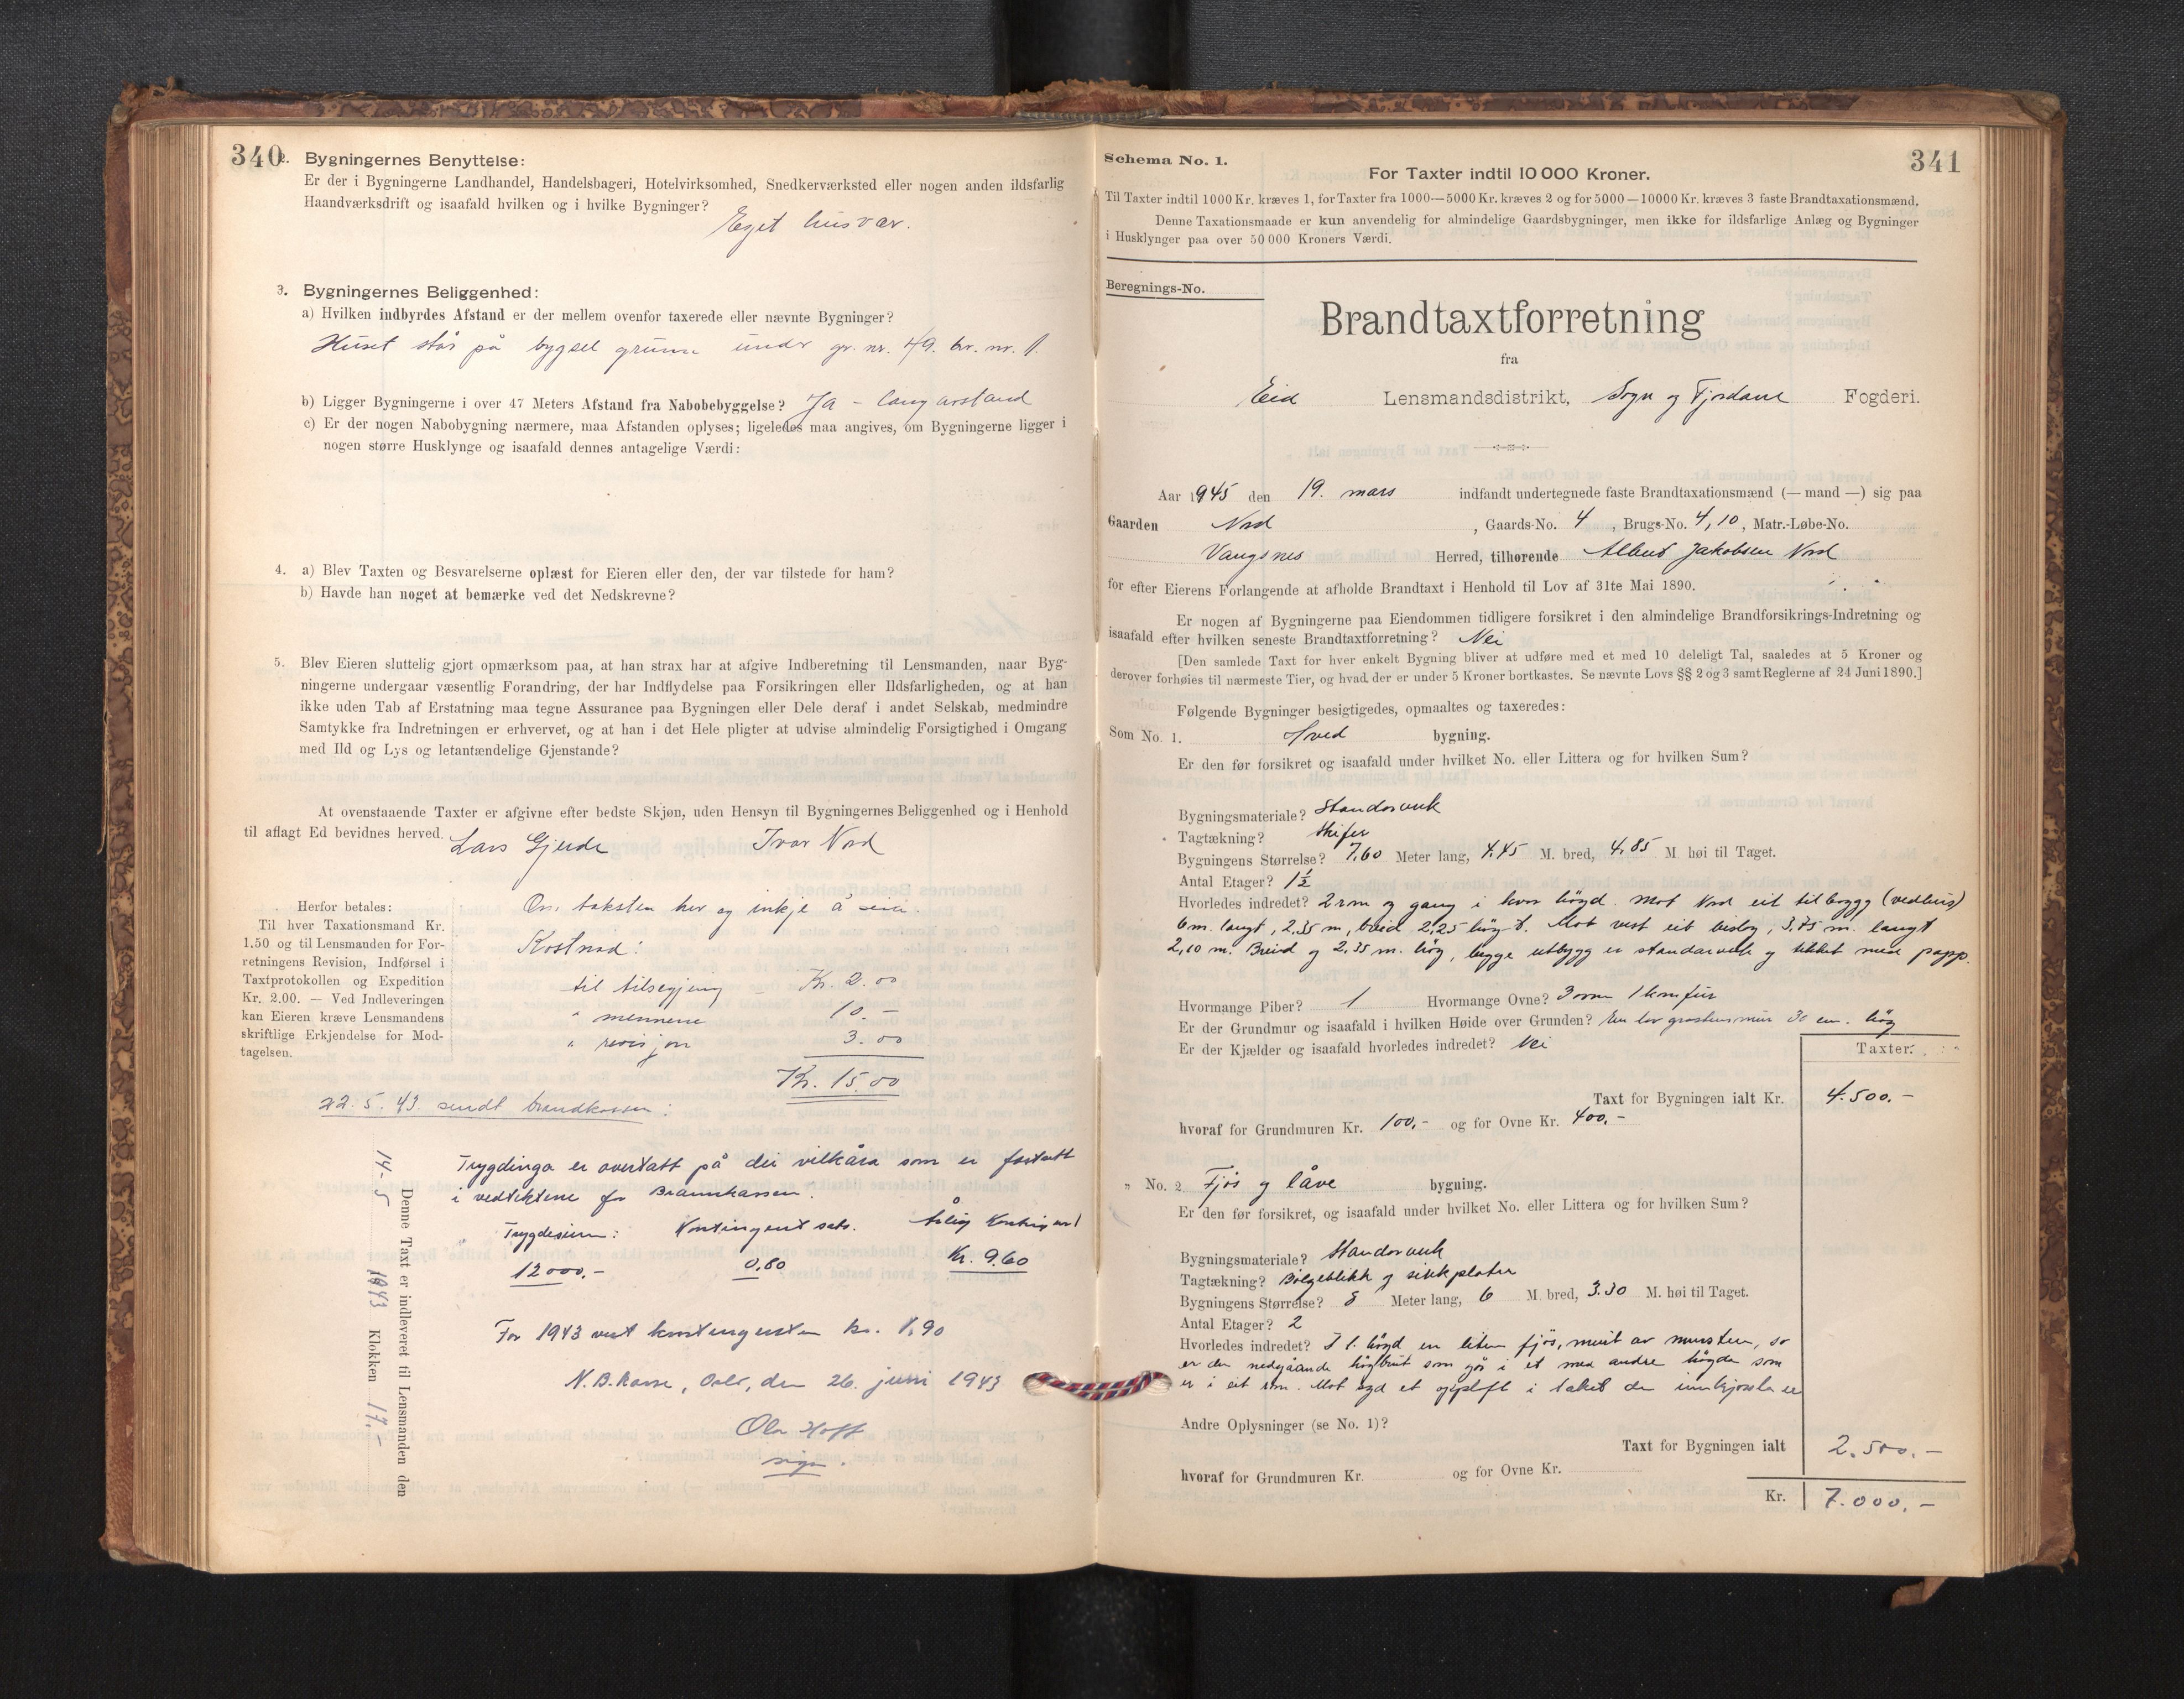 340
2. Bygningernes Benyttelse:
Er der i Bygningerne Landhandel, Handelsbageri, Hotelvirksomhed, Snedkerværksted eller nogen anden ildsfarlig
Haandværksdrift og isaafald hvilken og i hvilke Bygninger?
Eget husvær.
3. Bygningernes Beliggenhed:
a) Hvilken indbyrdes Afstand er der mellem ovenfor taxerede eller nævnte Bygninger?
Huset står på bygsel grunn undr gr. nr. 49. br. nr. 1.
b) Ligger Bygningerne i over 47 Meters Afstand fra Nabobebyggelse? Ja - lang avstand
c) Er der nogen Nabobygning nærmere, maa Afstanden oplyses; ligeledes maa angives, om Bygningerne ligger i
nogen større Husklynge og isaafald dennes antagelige Værdi:
4. a) Blev Taxten og Besvarelserne oplæst for Eieren eller den, der var tilstede for ham?
b) Havde han noget at bemærke ved det Nedskrevne?
5. Blev Eieren sluttelig gjort opmærksom paa, at han strax har at afgive Indberetning til Lensmanden, naar Byg-
ningerne undergaar væsentlig Forandring, der har Indflydelse paa Forsikringen eller Ildsfarligheden, og at han
ikke uden Tab af Erstatning maa tegne Assurance paa Bygningen eller Dele deraf i andet Selskab, medmindre
Samtykke fra Indretningen er erhvervet, og at han i det Hele pligter at udvise almindelig Forsigtighed i Omgang
med Ild og Lys og letantændelige Gjenstande?
At ovenstaaende Taxter er afgivne efter bedste Skjøn, uden Hensyn til Bygningernes Beliggenhed og i Henhold
til aflagt Ed bevidnes herved.
Lars Gjerde Ivar Nord
Herfor betales:
Til hver Taxationsmand Kr.
1.50 og til Lensmanden for For-
retningens Revision, Indførsel i
Taxtprotokollen og Expedition
Kr. 2.00. — Ved Indleveringen
kan Eieren kræve Lensmandens
skriftlige Erkjendelse for Mod-
tagelsen.
Om taksten her eg inkje å seia.
Kostnad:
til tilsegjing - Kr. 2.00
" mennene 10.-
" revisjon 3.00
Kr. 15.00
22. 5. 43. sendt brandkassen:
Trygdinga er overtatt på dei vilkåra som er fastsatt
i vedtektene for Brannkassen.
Trygdesum: Kontingent sats. Årlig Kontingent
12000.- 0.80 Kr. 9.60
For 1943 vert kontingenten kr. 1.90
N. B. Kasse, Oslo, den 26. juni 1943
Ola Hoff
sign.
Denne Taxt er indleveret til Lensmanden den
14-5 1943 Klokken 17.-
Schema No. 1.
341
For Taxter indtil 10 000 Kroner.
Til Taxter indtil 1000 Kr. kræves 1, for Taxter fra 1000—5000 Kr. kræves 2 og for 5000—10000 Kr. kræves 3 faste Brandtaxationsmænd.
Denne Taxationsmaade er kun anvendelig for almindelige Gaardsbygninger, men ikke for ildsfarlige Anlæg og Bygninger
i Husklynger paa over 50 000 Kroners Værdi.
Beregnings-No.
Brandtaxtforretning
fra
Eid Lensmandsdistrikt, Sogn og Fjordane Fogderi.
Aar 1945 den 19. mars indfandt undertegnede faste Brandtaxationsmænd (— mand —) sig paa
Gaarden Nord, Gaards-No. 4, Brugs-No. 4, 10, Matr.-Løbe-No.
Vangsnes Herred, tilhørende Albert Jakobsen Nord
for efter Eierens Forlangende at afholde Brandtaxt i Henhold til Lov af 31te Mai 1890.
Er nogen af Bygningerne paa Eiendommen tidligere forsikret i den almindelige Brandforsikrings-Indretning og
isaafald efter hvilken seneste Brandtaxtforretning? Nei
[Den samlede Taxt for hver enkelt Bygning bliver at udføre med et med 10 deleligt Tal, saaledes at 5 Kroner og
derover forhøies til nærmeste Tier, og hvad der er under 5 Kroner bortkastes. Se nævnte Lovs §§ 2 og 3 samt Reglerne af 24 Juni 1890.]
Følgende Bygninger besigtigedes, opmaaltes og taxeredes:
Som No. 1. Hved bygning.
Er den før forsikret og isaafald under hvilket No. eller Littera og for hvilken Sum?
Bygningsmateriale? Standarverk
Tagtækning? Skifer
Bygningens Størrelse? 7,60 Meter lang, 4.45 M. bred, 4.85 M. høi til Taget.
Antal Etager? 1 1/2
Hvorledes indredet? 2 rom og gang i kvar høgd. Mot Nord eit tilbygg (vedhus)
6 m. langt, 2,35 m, breid 2,25 høgd. Mot vest eit bislag, 3,75 m. langt
2,10 m. Breid og 2,35 m. høg, begge utbygg er standarverk og tekket med papp.
Hvormange Piber? 1 Hvormange Ovne? 3 omn 1 komfur
Er der Grundmur og isaafald i hvilken Høide over Grunden? En lav gråstensmur 30 cm. høg
Er der Kjælder og isaafald hvorledes indredet? Nei
Taxter.
Taxt for Bygningen ialt Kr. 4.500.-
hvoraf for Grundmuren Kr. 100,- og for Ovne Kr. 400.-
" No. 2 Fjøs og låve bygning.
Er den før forsikret, og isaafald under hvilket No. eller Littera og for hvilken Sum?
Bygningsmateriale? Standarverk
Tagtækning? Bølgeblikk og sinkplater
Bygningens Størrelse? 8 Meter lang, 6 M. bred, 3.30 M. høi til Taget.
Antal Etager? 2
Hvorledes indredet? I 1. høgd en liten fjøs, murt av mursten, so
er der nedgåande som går i et med andre høgda som
er i eit rom. Mot syd et i taket der er
Andre Oplysninger (se No. 1)?
Taxt for Bygningen ialt 2.500.-
hvoraf for Grundmuren Kr. og for Ovne Kr.
Kr. 7.000.-